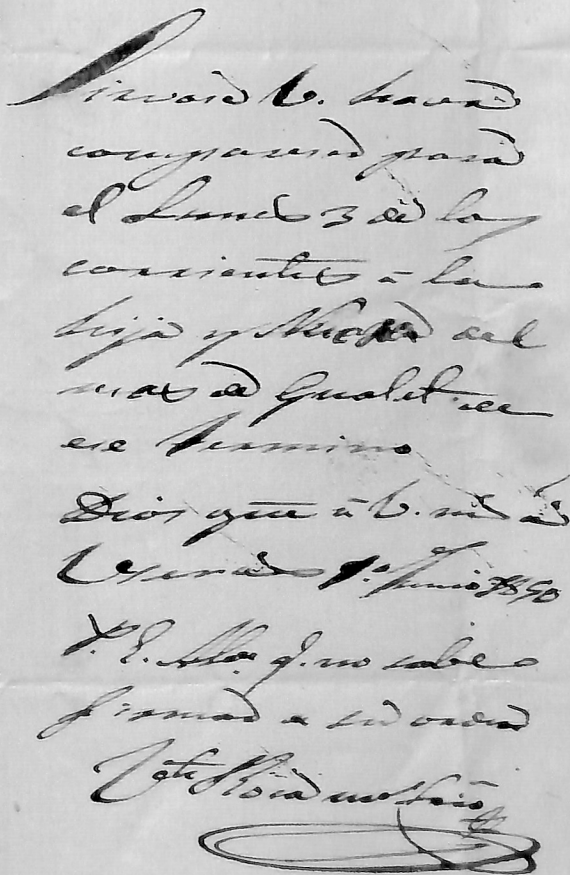 Sirvase V. hacer
comparecer para
el Lunes 3 de los
corrientes á la
hija y Nuera del
mas de Gualet de
ese termino
Dios gue á V. ms as
1º Junio 1850
P. E. Alde q. no sabe
firmar a su orden
Vte Srio